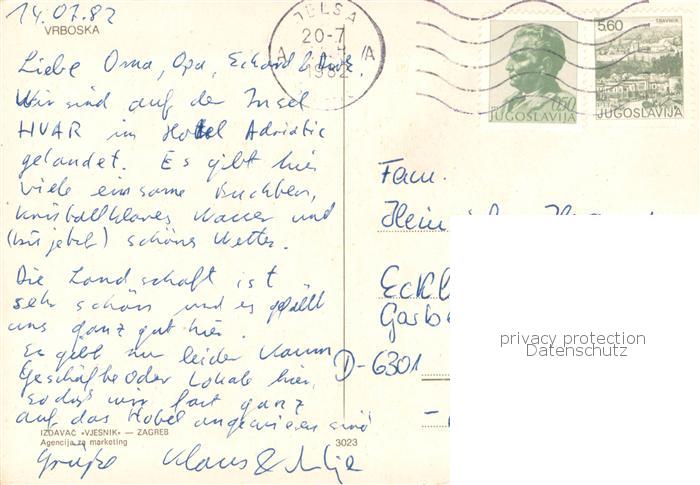 14.07.82
VRBOSKA
JELSA
20-7
1982
A
A
0.50
JUGOSLAVIJA
TRAVNIK
5.60
JUGOSLAVIJA
Liebe Oma, Opa, Eckard &
Wir sind auf der Insel
HVAR im Hotel Adriatic
gelandet. Es gibt hier
viele einsame Buchten,
kristallklares Wasser und
(bis jetzt) schönes Wetter.
Die Landschaft ist
sehr schön und es gefällt
uns ganz gut hier.
Es gibt nur leider kaum
Geschäfte oder Lokale hier,
so daß wir fast ganz
auf das Hotel angewiesen sind
IZDAVAČ «VJESNIK» — ZAGREB
Agencija za marketing
3023
Grüße Klaus &
Fam.
Eckl
Garbe
D-6301
privacy protection
Datenschutz